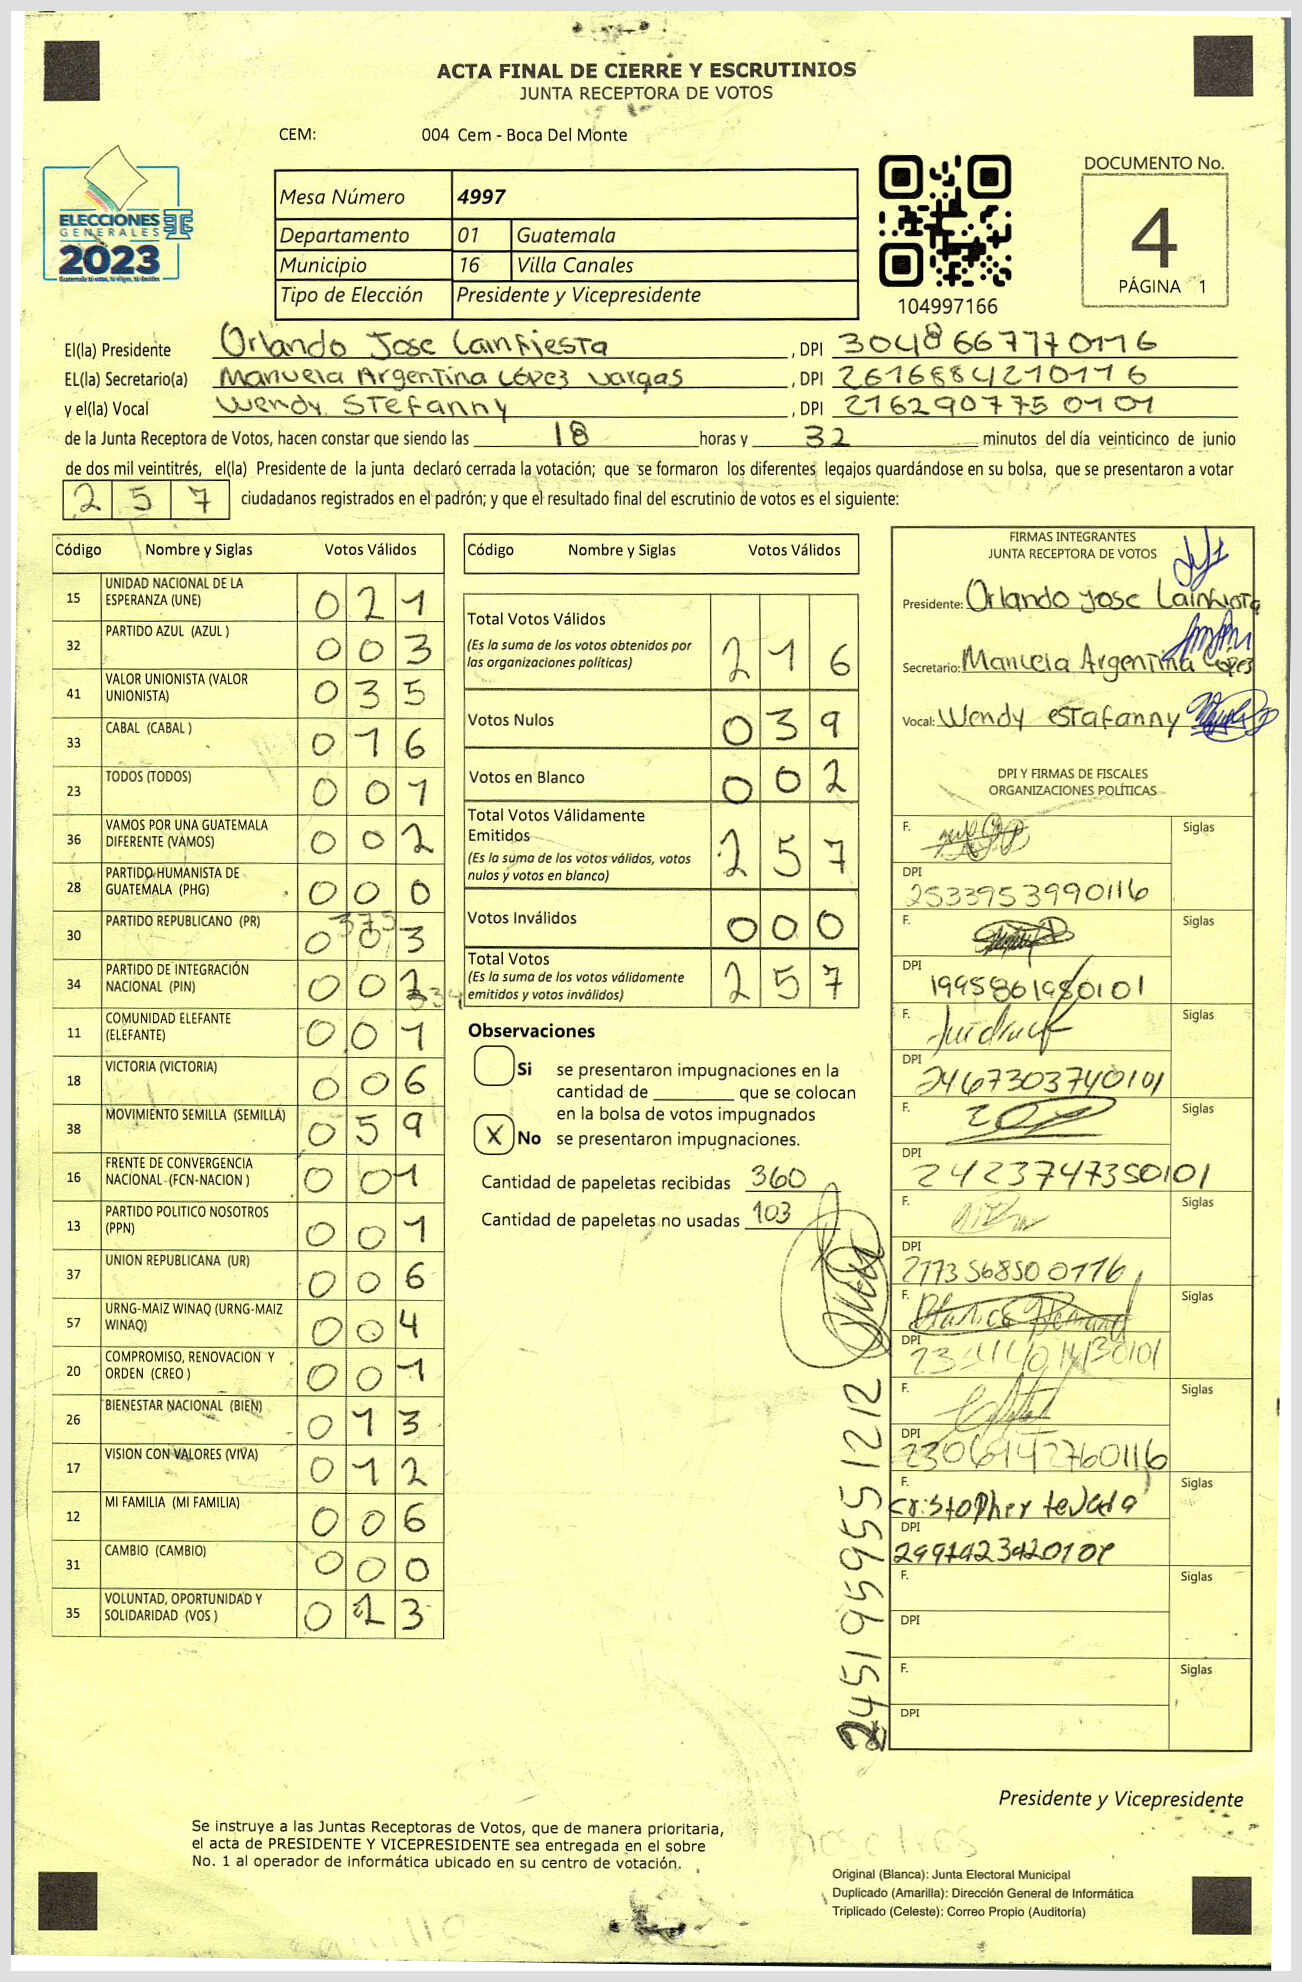 ACTA FINAL DE CIERRE Y ESCRUTINIOS
JUNTA RECEPTORA DE VOTOS
CEM: 004 Cem - Boca Del Monte
ELECCIONES
GENERALES
2023
Mesa Número 4997
Departamento 01 Guatemala
Municipio 16 Villa Canales
Tipo de Elección Presidente y Vicepresidente
104997166
DOCUMENTO No.
4
PÁGINA 1
El(la) Presidente Orlando Jose Lainfiesta , DPI 3048667770116
EL(la) Secretario(a) Manuela Argentina López Vargas , DPI 2616884210116
y el(la) Vocal Wendy Stefanny , DPI 2162907750101
de la Junta Receptora de Votos, hacen constar que siendo las 18 horas y 32 minutos del día veinticinco de junio
de dos mil veintitrés, el(la) Presidente de la junta declaró cerrada la votación; que se formaron los diferentes legajos guardándose en su bolsa, que se presentaron a votar
257 ciudadanos registrados en el padrón; y que el resultado final del escrutinio de votos es el siguiente:
Código Nombre y Siglas Votos Válidos
15 UNIDAD NACIONAL DE LA ESPERANZA (UNE) 021
32 PARTIDO AZUL (AZUL ) 003
41 VALOR UNIONISTA (VALOR UNIONISTA) 035
33 CABAL (CABAL ) 016
23 TODOS (TODOS) 001
36 VAMOS POR UNA GUATEMALA DIFERENTE (VAMOS) 002
28 PARTIDO HUMANISTA DE GUATEMALA (PHG) 000
30 PARTIDO REPUBLICANO (PR) 003
34 PARTIDO DE INTEGRACIÓN NACIONAL (PIN) 002
11 COMUNIDAD ELEFANTE (ELEFANTE) 001
18 VICTORIA (VICTORIA) 006
38 MOVIMIENTO SEMILLA (SEMILLA) 059
16 FRENTE DE CONVERGENCIA NACIONAL (FCN-NACION ) 001
13 PARTIDO POLITICO NOSOTROS (PPN) 001
37 UNION REPUBLICANA (UR) 006
57 URNG-MAIZ WINAQ (URNG-MAIZ WINAQ) 004
20 COMPROMISO, RENOVACION Y ORDEN (CREO ) 001
26 BIENESTAR NACIONAL (BIEN) 013
17 VISION CON VALORES (VIVA) 012
12 MI FAMILIA (MI FAMILIA) 006
31 CAMBIO (CAMBIO) 000
35 VOLUNTAD, OPORTUNIDAD Y SOLIDARIDAD (VOS ) 023
Código Nombre y Siglas Votos Válidos
Total Votos Válidos 216
(Es la suma de los votos obtenidos por
las organizaciones políticas)
Votos Nulos 039
Votos en Blanco 002
Total Votos Válidamente
Emitidos 257
(Es la suma de los votos válidos, votos
nulos y votos en blanco)
Votos Inválidos 000
Total Votos 257
(Es la suma de los votos válidamente
emitidos y votos inválidos)
Observaciones
Si se presentaron impugnaciones en la
cantidad de ________ que se colocan
en la bolsa de votos impugnados
X No se presentaron impugnaciones.
Cantidad de papeletas recibidas 360
Cantidad de papeletas no usadas 103
2451959551212
FIRMAS INTEGRANTES
JUNTA RECEPTORA DE VOTOS
Presidente: Orlando Jose Lainfiesta
Secretario: Manuela Argentina López
Vocal: Wendy Estafanny
DPI Y FIRMAS DE FISCALES
ORGANIZACIONES POLÍTICAS
F. Siglas
DPI 2533953990116
F. Siglas
DPI 1995861980101
F. Siglas
DPI 2467303740101
F. Siglas
DPI 2423747350101
F. Siglas
DPI 2173568500116
F. Siglas
DPI
F. Siglas
DPI 2306142760116
F. Cristopher Siglas
DPI
F. Siglas
DPI
F. Siglas
DPI
Presidente y Vicepresidente
Se instruye a las Juntas Receptoras de Votos, que de manera prioritaria,
el acta de PRESIDENTE Y VICEPRESIDENTE sea entregada en el sobre
No. 1 al operador de informática ubicado en su centro de votación.
nosotros
Original (Blanca): Junta Electoral Municipal
Duplicado (Amarilla): Dirección General de Informática
Triplicado (Celeste): Correo Propio (Auditoría)